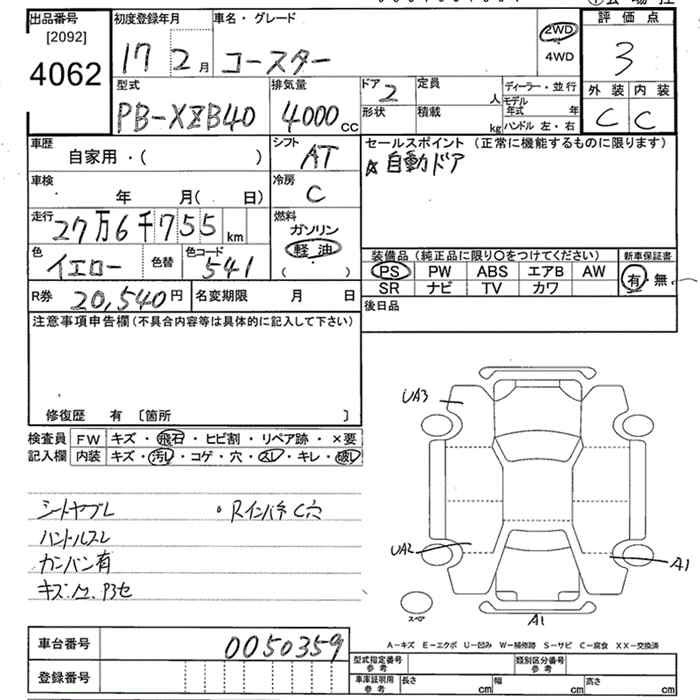 出品番号
[2092]
4062
初度登録年月
17 2月
車名・グレード
コースター
2WD
4WD
評価点
3
外装 内装
C C
型式
PB-XZB40
排気量
4000cc
ドア
2
形状
定員
人
積載
kg
ディーラー・並行
モデル
年式 年
ハンドル 左・右
車歴
自家用・( )
シフト
AT
セールスポイント (正常に機能するものに限ります)
自動ドア
車検
年 月( 日)
冷房
C
走行
27万6千755km
燃料
ガソリン
軽油
( )
色
イエロー
色替
色コード
541
装備品 (純正品に限り○をつけてください)
PS PW ABS エアB AW
SR ナビ TV カワ
新車保証書
有・無
R券
20,540円
名変期限 月 日
後日品
注意事項申告欄 (不具合内容等は具体的に記入して下さい)
修復歴 有 〔箇所 〕
検査員
記入欄
FW キズ・飛石・ヒビ割・リペア跡・×要
内装 キズ・汚レ・コゲ・穴・スレ・キレ・破レ
シートヤブレ
・Rインパネ C穴
ハンドルスレ
カンバン有
UA3
UA2
A1
スペア
A1
A－キズ E－エクボ U－凹み W－補修跡 S－サビ C－腐食 XX－交換済
車台番号
0050359
登録番号
型式指定番号
参考
類別区分番号
参考
車庫証明用
参考
長さ cm
幅 cm
高さ cm